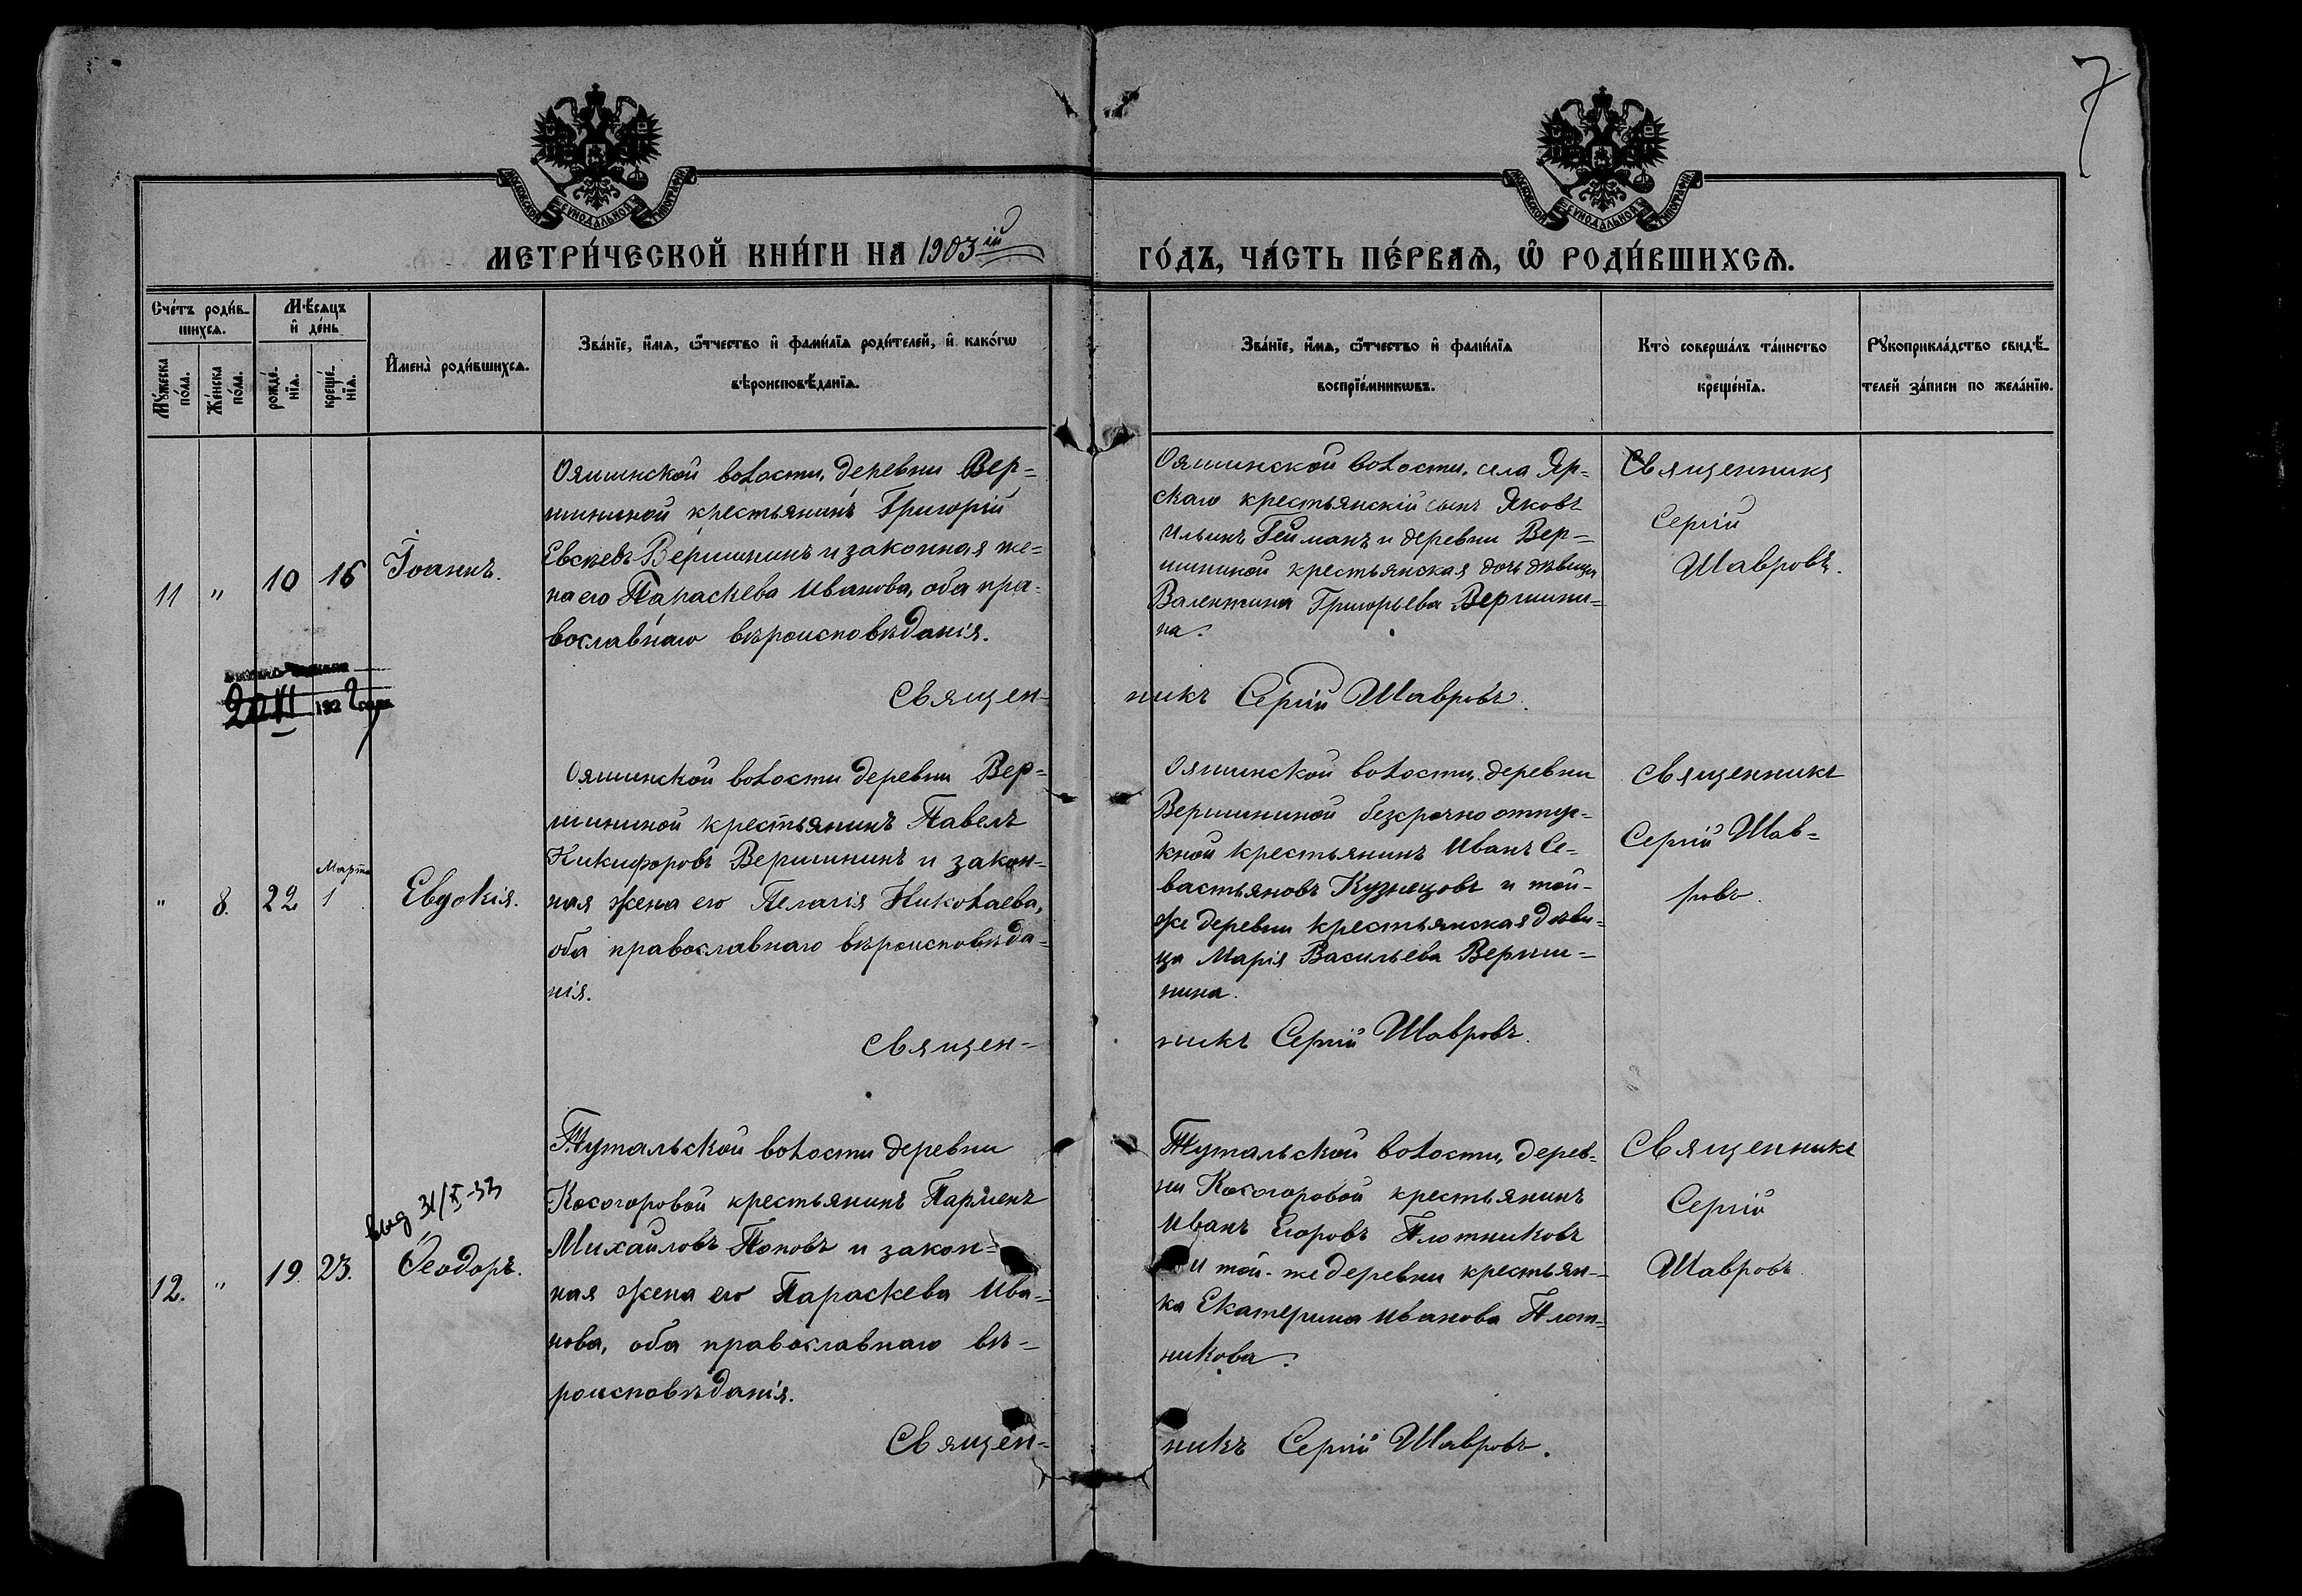 7
МОСКОВСКОЙ СѴНОДАЛЬНОЙ ТИПОГРАФІИ
МОСКОВСКОЙ СѴНОДАЛЬНОЙ ТИПОГРАФІИ
МЕТРИ́ЧЕСКОЙ КНИ́ГИ НА 1903ій
ГО́ДЪ, ЧА́СТЬ ПЕ́РВАѦ, Ѽ РОДИ́ВШИХСѦ.
Сче́тъ роди́в-
шихсѧ.
Мꙋ́жеска
по́ла.
Же́нска
по́ла.
Мѣ́сѧцъ
и҆ де́нь
рожде́-
нїѧ.
креще́-
нїѧ.
И҆мена̀ роди́вшихсѧ.
Зва́нїе, и҆́мѧ, ѻ҆́тчество и҆ фамѝлїѧ роди́телей, и҆ како́гѡ
вѣроисповѣ́данїѧ.
Зва́нїе, и҆́мѧ, ѻ҆́тчество и҆ фамѝлїѧ
воспрїе́мникѡвъ.
Кто̀ соверша́лъ та́инство
креще́нїѧ.
Рꙋкоприкла́дство свидѣ́-
телей за́писи по жела́нїю.
11 " 10 16 Іоаннъ.
Ояшинской волости, деревни Вер=
шининой крестьянинъ Григорій
Евсѣевъ Вершининъ и законная же=
на его Параскева Иванова, оба пра-
вославнаго вѣроисповѣданія.
Священ-
Ояшинской волости, села Яр-
скаго крестьянскій сынъ Яковъ
Ильинъ Гейманъ и деревни Вер=
шининой крестьянская дочь дѣвица
Валентина Григорьева Вершини=
на.
никъ Сергій Шавровъ.
Священникъ
Сергій
Шавровъ.
192 года
" 8. 22 Марта 1 Евдокія.
Ояшинской волости деревни Вер=
шининой крестьянинъ Павелъ
Никифоровъ Вершининъ и закон-
ная жена его Пелагія Николаева,
оба православнаго вѣроисповѣда-
нія.
Священ-
Ояшинской волости, деревни
Вершининой безсрочно отпус-
кной крестьянинъ Иванъ Се-
вастьяновъ Кузнецовъ и той-
же деревни крестьянская дѣви-
ца Марія Васильева Верши=
нина.
никъ Сергій Шавровъ.
Священникъ
Сергій Шав=
ровъ.
выд 31/X-33
12. " 19. 23. Ѳеодоръ.
Тутальской волости деревни
Косогоровой крестьянинъ Парменъ
Михайловъ Поповъ и закон=
ная жена его Параскева Ива-
нова, оба православнаго вѣ-
роисповѣданія.
Священ-
Тутальской волости, дерев-
ни Косогоровой крестьянинъ
Иванъ Егоровъ Плотниковъ
и той-же деревни крестьян-
ка Екатерина Иванова Плот-
никова.
никъ Сергій Шавровъ.
Священникъ
Сергій
Шавровъ.